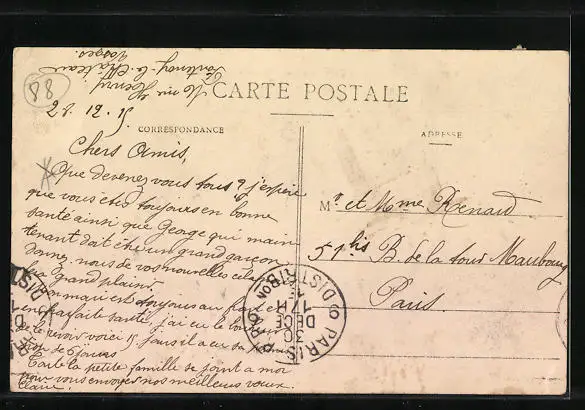 Mme Henry
Fontenoy-le-Château
Vosges
88
CARTE POSTALE
28.12.15
CORRESPONDANCE
ADRESSE
Chers Amis,
Que devenez vous tous ? j'espère
que vous êtes toujours en bonne
santé ainsi que George qui main
tenant doit être un grand garçon
donnez nous de vos nouvelles cela
fera grand plaisir.
Mon mari est toujours au
en parfaite santé, j'ai eu le
de le revoir voici 15 jours il a eu sa
de 6 jours
Toute la petite famille se joint a moi
pour vous envoyer nos meilleurs vœux.
Claire.
Mr et Mme Renard
51 bis B. de la tour Maubourg
Paris
PARIS
DISTRIBUTION
17 H
30
DECE